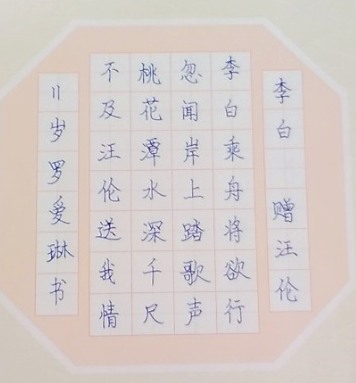 李白 赠汪伦
李白乘舟将欲行
忽闻岸上踏歌声
桃花潭水深千尺
不及汪伦送我情
11岁罗爱琳书